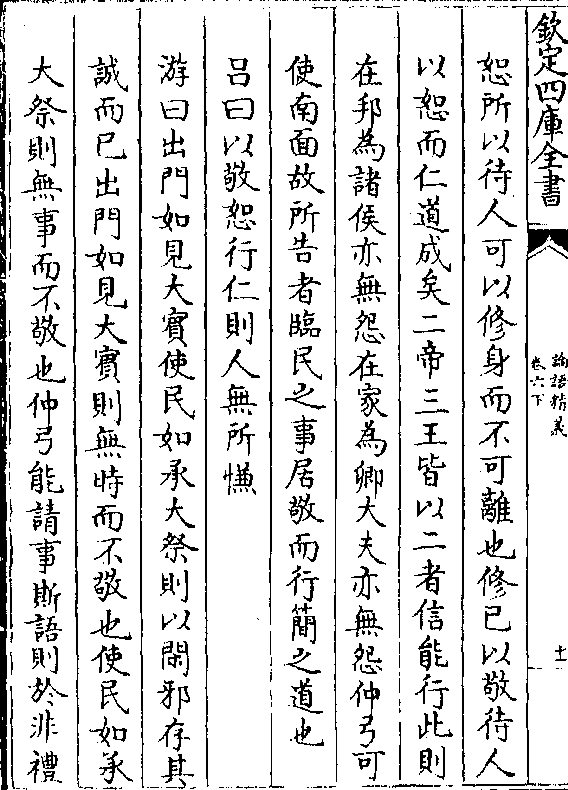 欽定四庫全書
論語精義
卷六下
十一
恕所以待人可以修身而不可離也修已以敬待人
以恕而仁道成矣二帝三王皆以二者信能行此則
在邦為諸侯亦無怨在家為卿大夫亦無怨仲弓可
使南面故所告者臨民之事居敬而行簡之道也
吕曰以敬恕行仁則人無所慊
游曰出門如見大賓使民如承大祭則以閑邪存其
誠而已出門如見大賓則無時而不敬也使民如承
大祭則無事而不敬也仲弓能請事斯語則於非禮